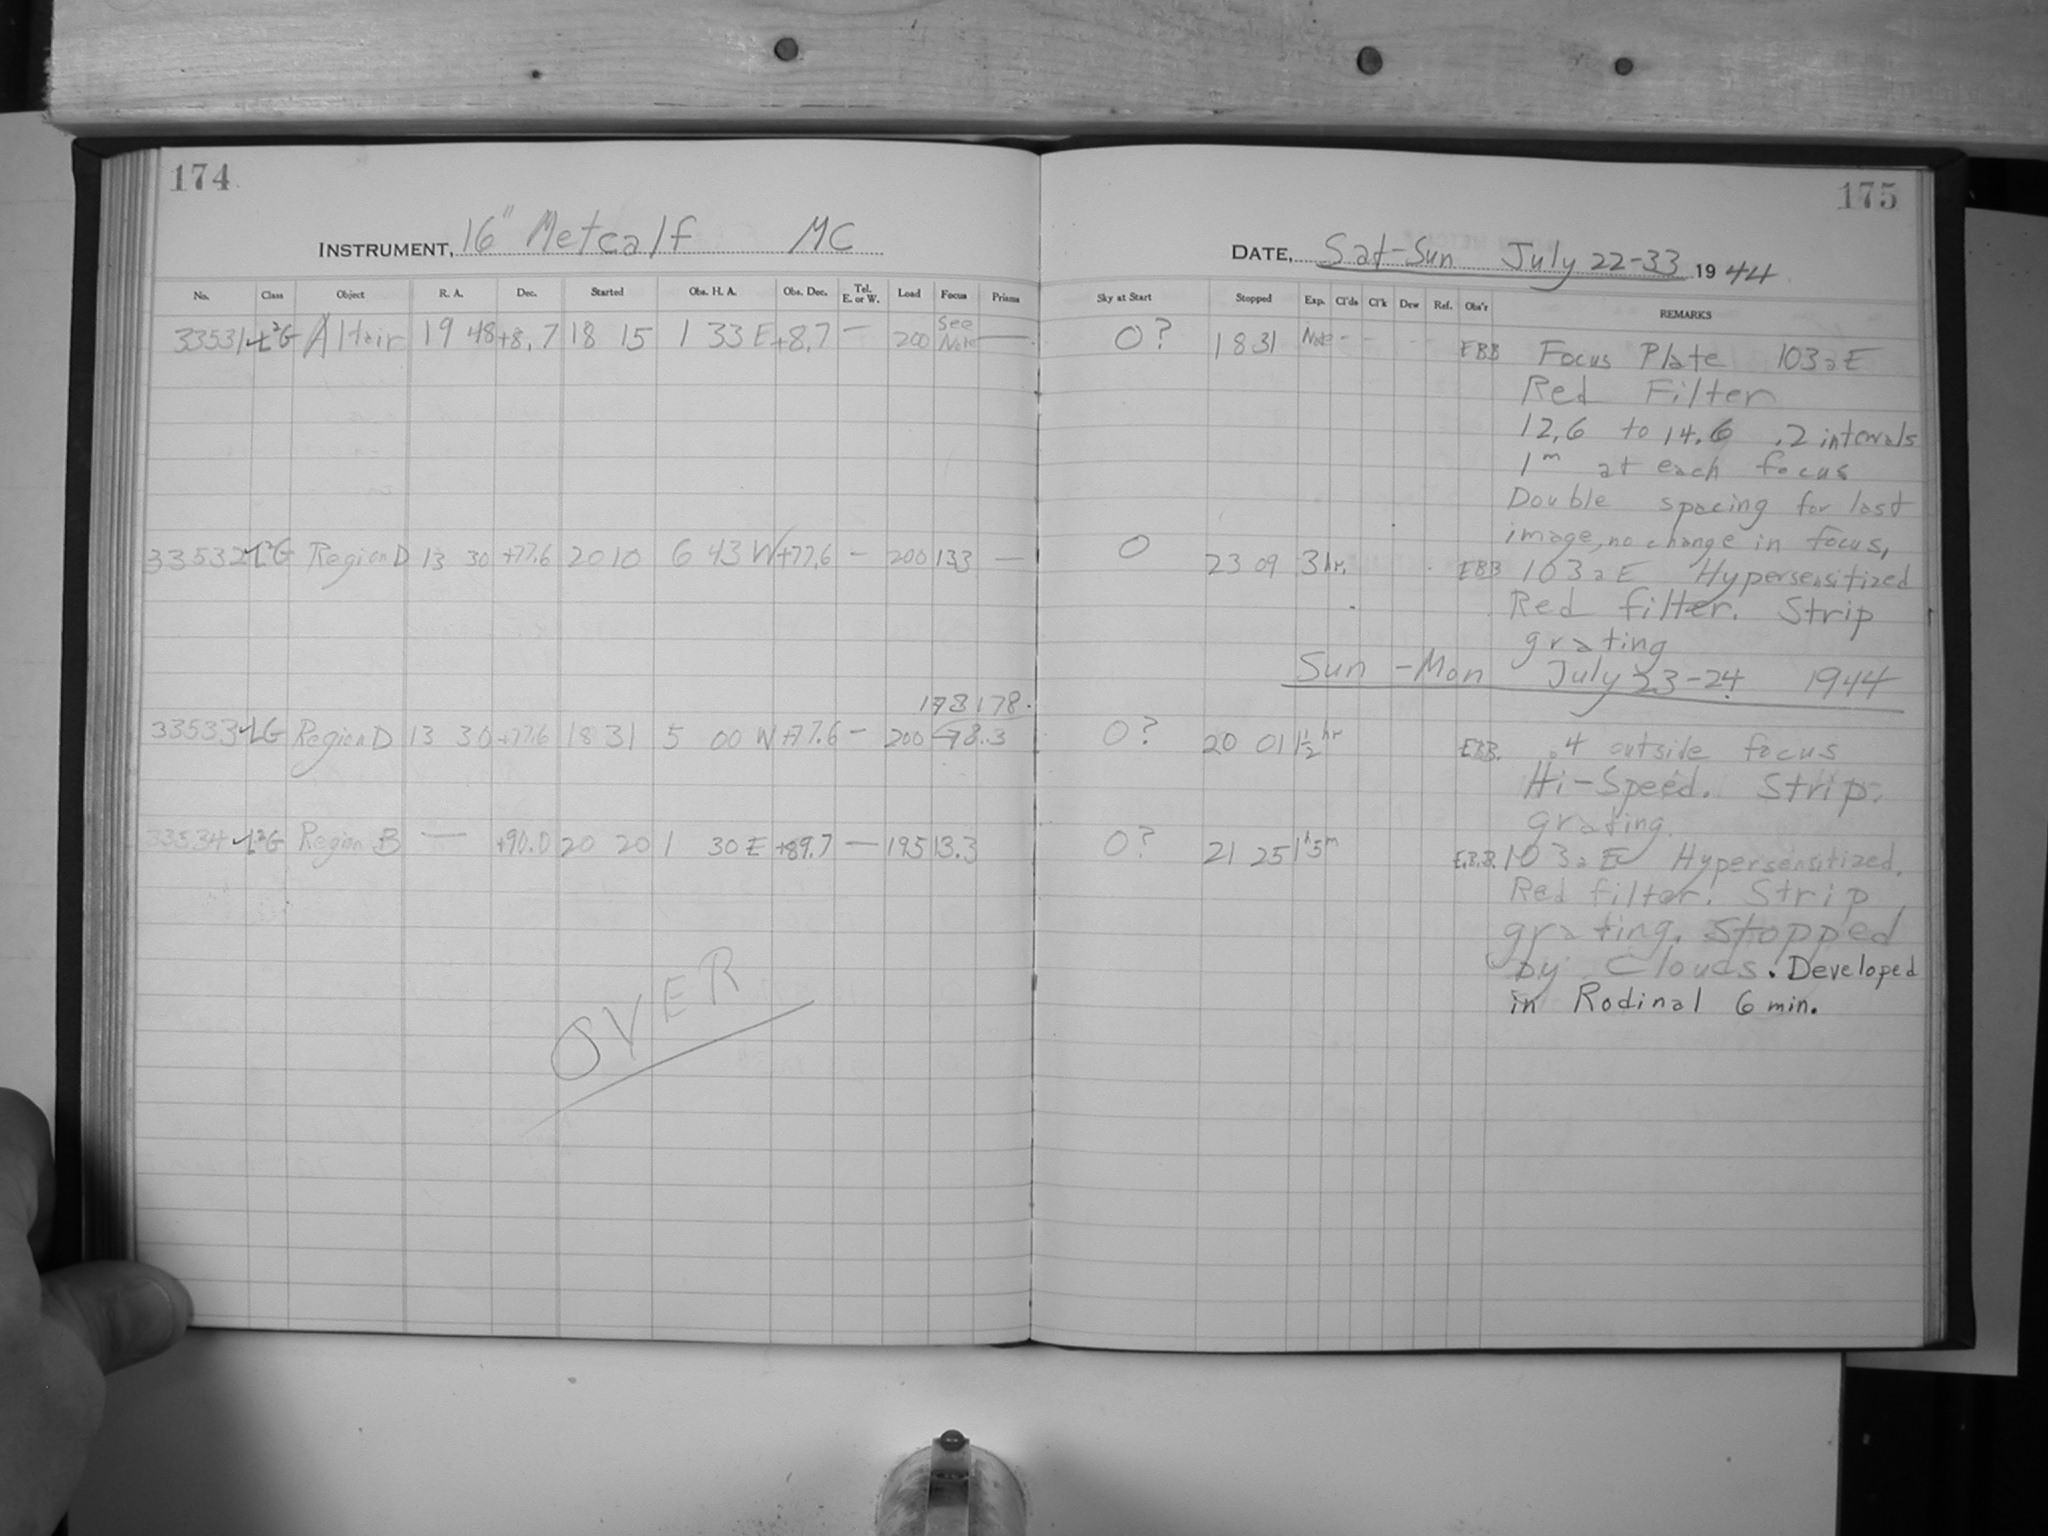 174
INSTRUMENT, 16" Metcalf MC
No. Class Object R. A. Dec. Started Obs. H. A. Obs. Dec. Tel. E. or W. Load Focus Prisms
33531 L²G Altair 19 48 +8.7 18 15 1 33 E +8.7 — 200 See Note —
33532 L²G Region D 13 30 +77.6 20 10 6 43 W +77.6 — 200 13.3 —
178.
33533 LG Region D 13 30 +77.6 18 31 5 00 W +77.6 — 200
33534 L²G Region B — +90.0 20 20 1 30 E +89.7 — 195 13.3
OVER
175
DATE, Sat-Sun July 22-33 1944
Sky at Start Stopped Exp. Cl'ds Cl'k Dew Ref. Obs'r REMARKS
0? 18 31 Note - - EBB Focus Plate 103aE
Red Filter
12.6 to 14.6 .2 intervals
1ᵐ at each focus
Double spacing for last
image, no change in focus,
0 23 09 3 hr. EBB 103aE Hypersensitized
Red filter. Strip
grating
Sun - Mon July 23-24 1944
0? 20 01 1½ hr EBB. .4 outside focus
Hi-Speed. Strip.
grating.
0? 21 25 1ʰ5ᵐ E.B.B. 103aE Hypersensitized.
Red filter. Strip
grating. Stopped
by Clouds. Developed
in Rodinal 6 min.